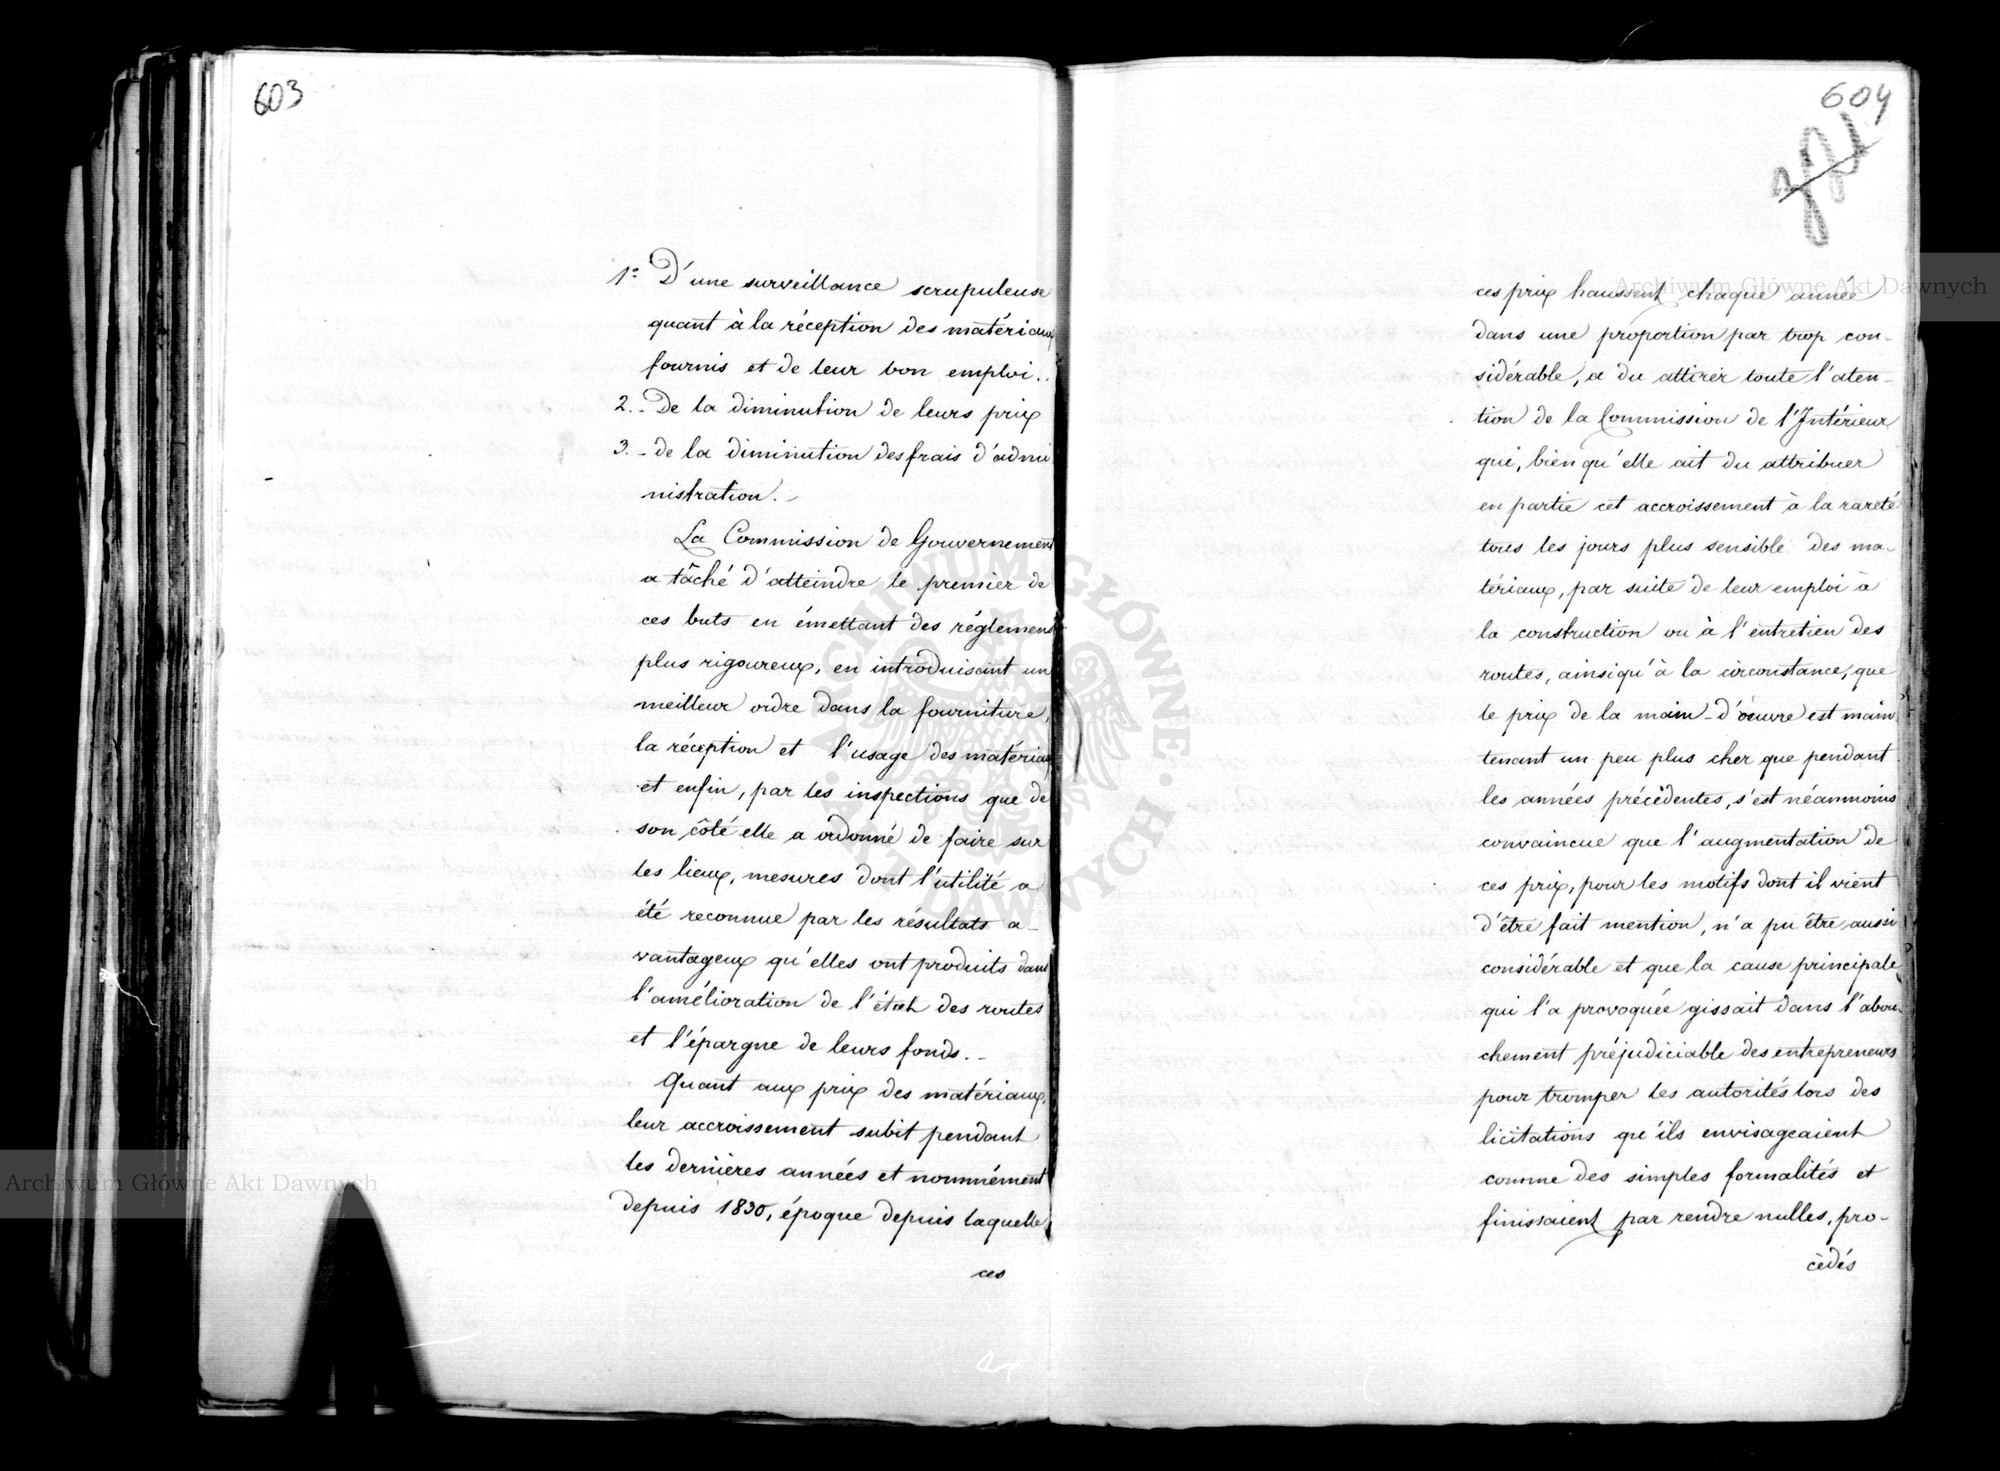 603
1º D'une surveillance scrupuleuse
quant à la réception des matériaux
fournis et de leur bon emploi..
2.- De la diminution de leurs prix
3.- de la diminution des frais d'admi
nistration.-
La Commission de Gouvernement
a tâché d'atteindre le premier de
ces buts en émettant des réglemens
plus rigoureux, en introduisant un
meilleur ordre dans la fourniture,
la réception et l'usage des matériaux
et enfin, par les inspections que de
son côté elle a ordonné de faire sur
les lieux, mesures dont l'utilité a
été reconnue par les résultats a-
vantageux qu'elles ont produits dans
l'amélioration de l'état des routes
et l'épargne de leurs fonds.-
Quant aux prix des matériaux,
leur accroissement subit pendant
les dernières années et nommément
depuis 1830, époque depuis laquelle
ces
604
ces prix haussent chaque année
dans une proportion par trop con-
sidérable, a du attirer toute l'aten-
tion de la Commission de l'Intérieur
qui, bien qu'elle ait du attribuer
en partie cet accroissement à la rareté
tous les jours plus sensible des ma-
tériaux, par suite de leur emploi à
la construction ou à l'entretien des
routes, ainsi qu'à la circonstance, que
le prix de la main-d'œuvre est main
tenant un peu plus cher que pendant
les années précédentes, s'est néanmoins
convaincue que l'augmentation de
ces prix, pour les motifs dont il vient
d'être fait mention, n'a pu être aussi
considérable et que la cause principale
qui l'a provoquée gissait dans l'abou-
chement préjudiciable des entrepreneurs
pour tromper les autorités lors des
licitations qu'ils envisageaient
comme des simples formalités et
finissaient par rendre nulles, pro-
cèdés
Archiwum Główne Akt Dawnych
Archiwum Główne Akt Dawnych
ARCHIWUM GŁÓWNE AKT DAWNYCH